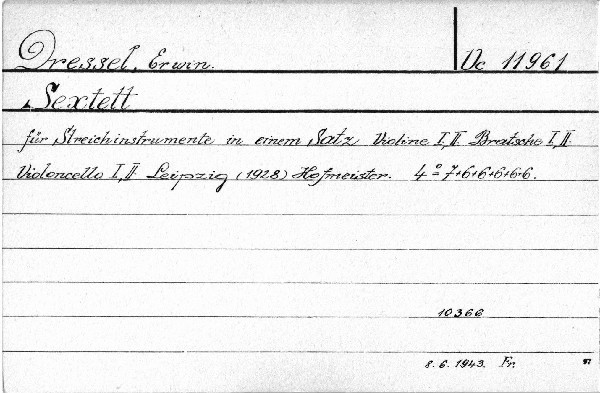 Dressel, Erwin. Vc 11961
Sextett
für Streichinstrumente in einem Satz Violine I, II. Bratsche I, II.
Violoncello I, II Leipzig (1928) Hofmeister. 4° 7+6+6+6+6+6.
10366
8. 6. 1943. Fr.